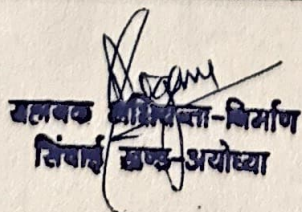 सहायक अभियन्ता-निर्माण
सिंचाई खण्ड-अयोध्या